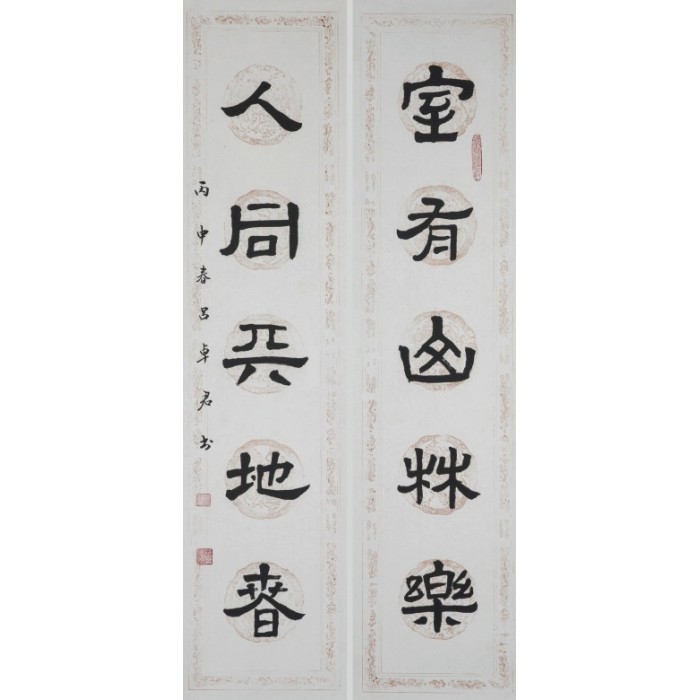 室有山林樂
人同天地春
丙申春吕卓君书